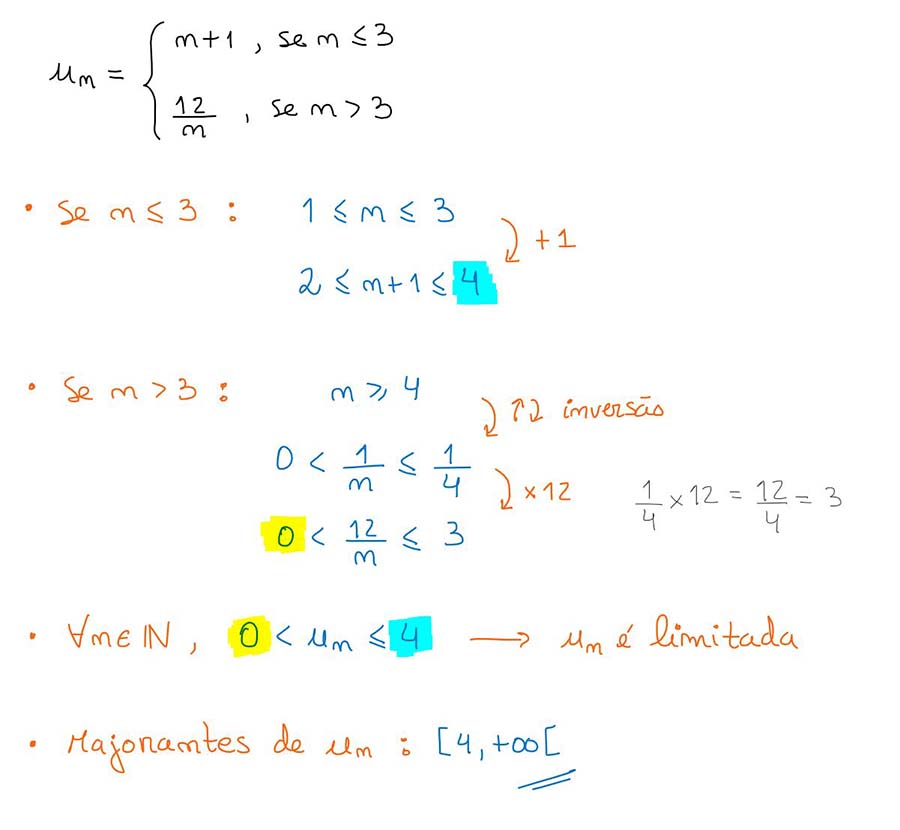 u_n = { n+1 , se n ≤ 3
12/n , se n > 3
• Se n ≤ 3 : 1 ≤ n ≤ 3
+1
2 ≤ n+1 ≤ 4
• Se n > 3 : n ⩾ 4
↑↓ inversão
0 < 1/n ≤ 1/4
×12 1/4 × 12 = 12/4 = 3
0 < 12/n ≤ 3
• ∀n∈ℕ , 0 < u_n ≤ 4 ⟶ u_n é limitada
• Majorantes de u_n : [4,+∞[